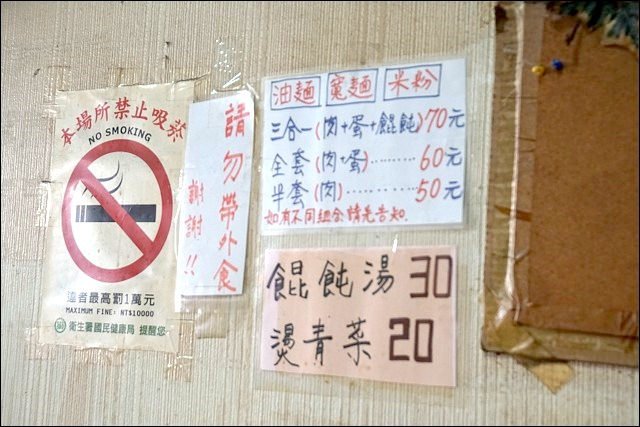 本場所禁止吸菸
NO SMOKING
違者最高罰1萬元
MAXIMUM FINE: NT$10000
衛生署國民健康局 提醒您
請勿帶外食
謝謝!!
油麵 寬麵 米粉
三合一(肉+蛋+餛飩)70元
全套(肉+蛋)........60元
半套(肉)..........50元
如有不同組合請先告知.
餛飩湯 30
燙青菜 20